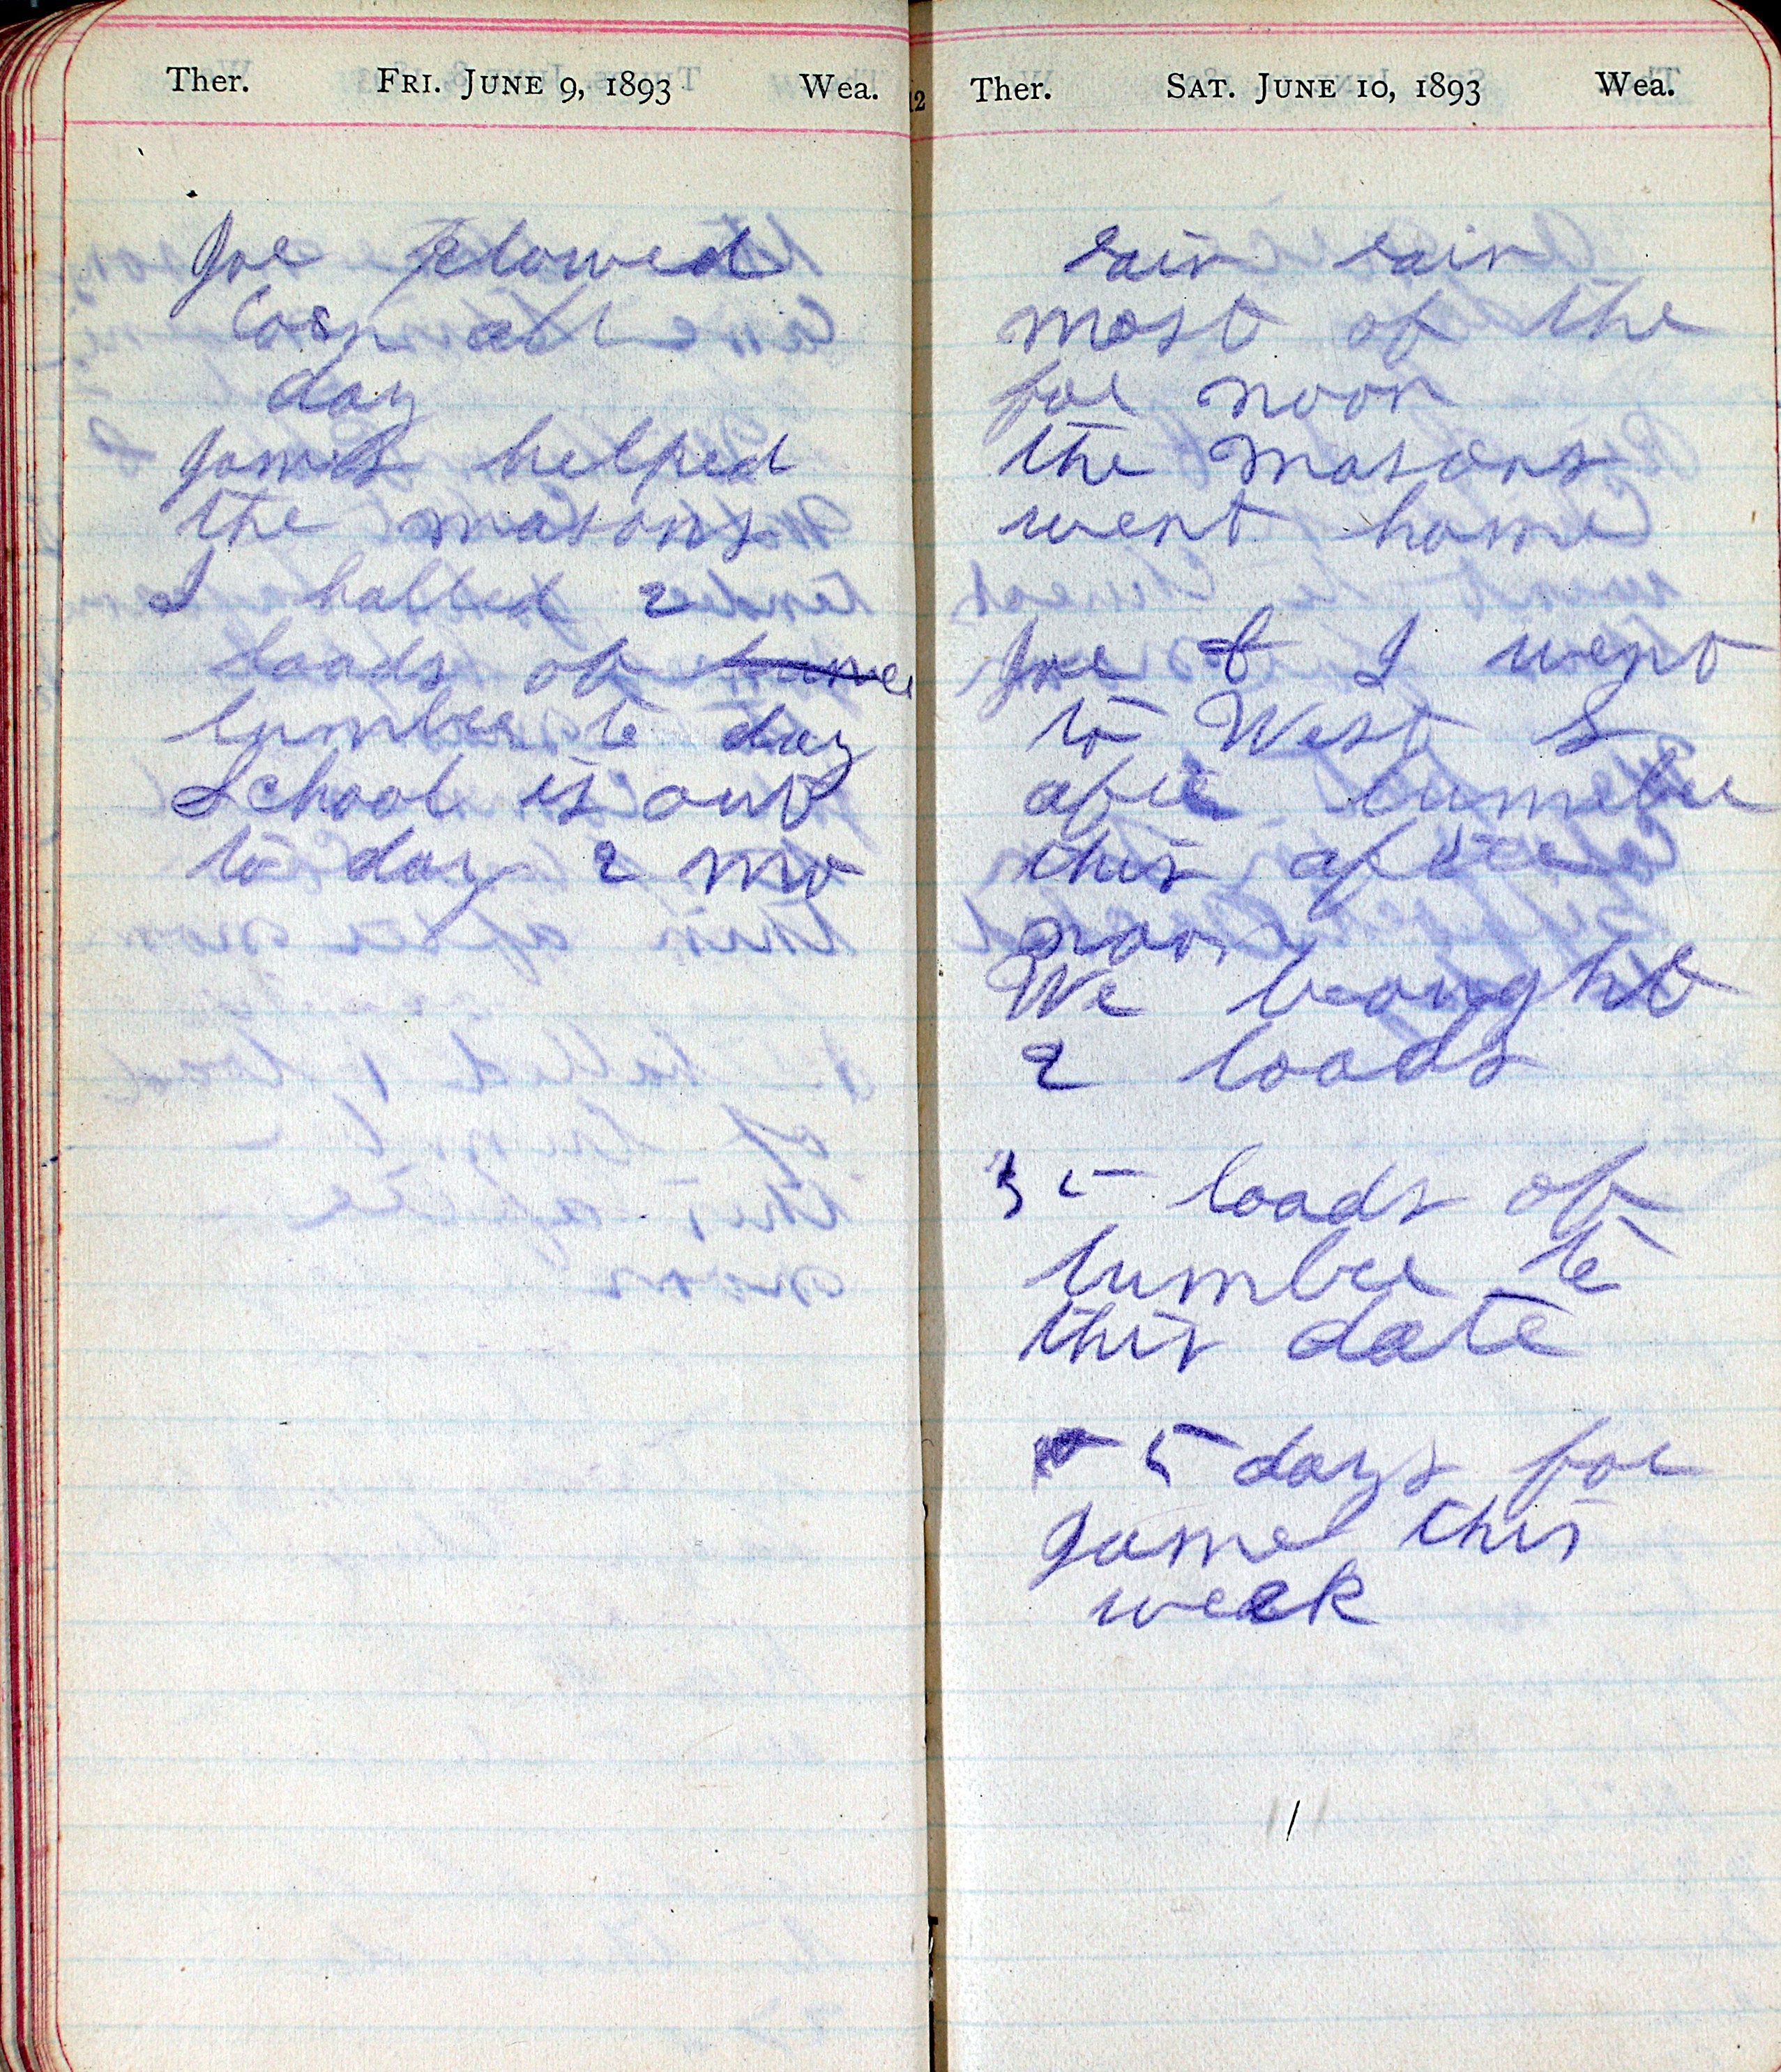 Ther. FRI. JUNE 9, 1893 Wea.
Joe plowed
Corn all
day
James helped
the masons
I halled 2
loads of
lumber to day
School is out
to day 2 mo
12
Ther. SAT. JUNE 10, 1893 Wea.
rain rain
most of the
for noon
the masons
went home
Joe & I went
to West S
after lumber
this after
noon
We bought
2 loads
35 loads of
lumber to
this date
5 days for
James this
week